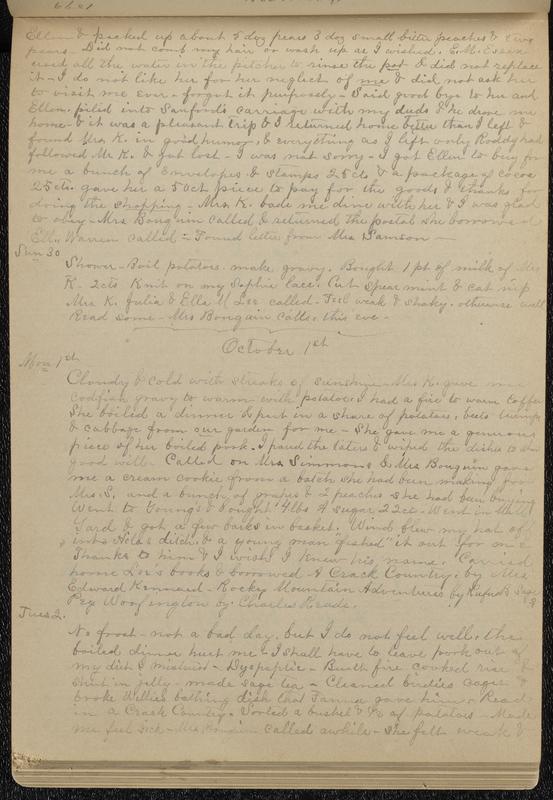 Ellen & picked up about 5 doz pears 3 doz small bitter peaches & two
pears. Did not comb my hair or wash up as I wished. E. M. Essex
used all the water in the pitcher to rinse the pot & did not replace
it - I do not like her for her neglect of me & did not ask her
to visit me ever - forgot it purposely - Said good bye to her and
Ellen. piled into Sanfords carriage with my duds & he drove me
home - & it was a pleasant trip & I returned home better than I left &
found Mrs K. in good humor, & everything as I left only Roddy had
followed Mr K. & got lost - I was not sorry - I got Ellen to buy for
me a bunch of Envelopes & stamps 25 cts & a package of cocoa
25 cts. gave her a 50 ct piece to pay for the goods & thanks for
doing the shopping - Mrs K. bade me dine with her & I was glad
to obey - Mrs Bonguin called & returned the postal she borrowed
Ella Warren called - Found letter from Mrs Samson -
Sun 30
Shower - Boil potatoes. make gravy. Bought 1 pt of milk of Mrs
K. 2cts Knit on my Saphie lace. Put Spearmint & cat nip
Mrs K. Julia & Ella M Lee called - Feel weak & shaky. otherwise well
Read some - Mrs Bonguin calls. this eve -
October 1st
Mon 1st
Cloudy & cold with streaks of sunshine - Mrs K. gave me
codfish gravy to warm with potatoes, had a fire to warm coffee
She boiled a dinner & put in a share of potatoes, beets turnips
& cabbage from our garden for me - She gave me a generous
piece of her boiled pork. I pared the taters & wiped the dishes to show
good will. Called on Mrs Simmons & Mrs Bonguin gave
me a cream cookie from a batch she had been making for
Mrs. S. and a bunch of grapes & 2 peaches she had been buying
Went to Youngs & bought 4 lbs of sugar 22 cts - Went in Mill
Yard & got a few barks in basket. Wind blew my hat off
into ditch & a young man "fished" it out for me
Thanks to him & I wish I knew his name. Carried
home Lee's books & borrowed A Crack Country; by Mrs
Edward Kennard - Rocky Mountain Adventures by Rufus B Sage
Peg Woffington by Charles Reade.
Tues 2.
No frost - not a bad day. but I do not feel well. the
boiled dinner hurt me - I shall have to leave pork out of
my diet & mixtures - Dyspeptic - Built fire cooked rice &
in jelly - made sage tea - Cleaned birdies cages &
broke Willies bathing dish that Fannie gave him - Read
in a Crack Country. Sorted a bushel & ½ of potatoes - Made
me feel sick - Mrs Bonguin called awhile - She felt weak &